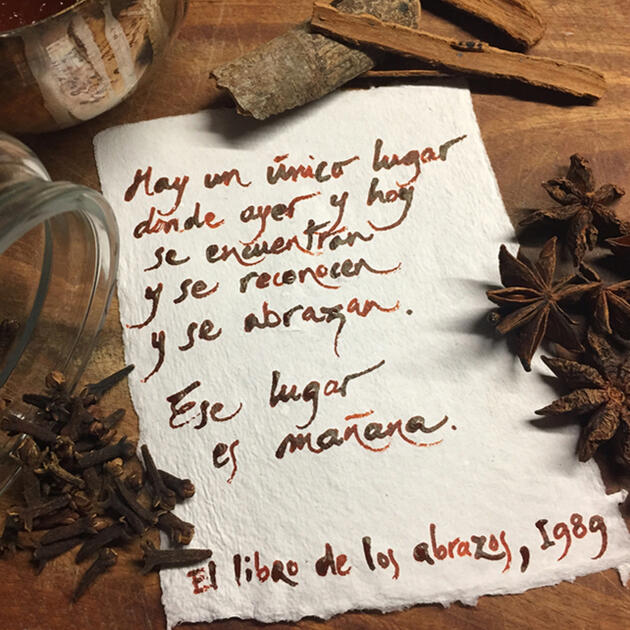 Hay un único lugar
donde ayer y hoy
se encuentran
y se reconocen
y se abrazan.
Ese lugar
es mañana.
El libro de los abrazos, 1989